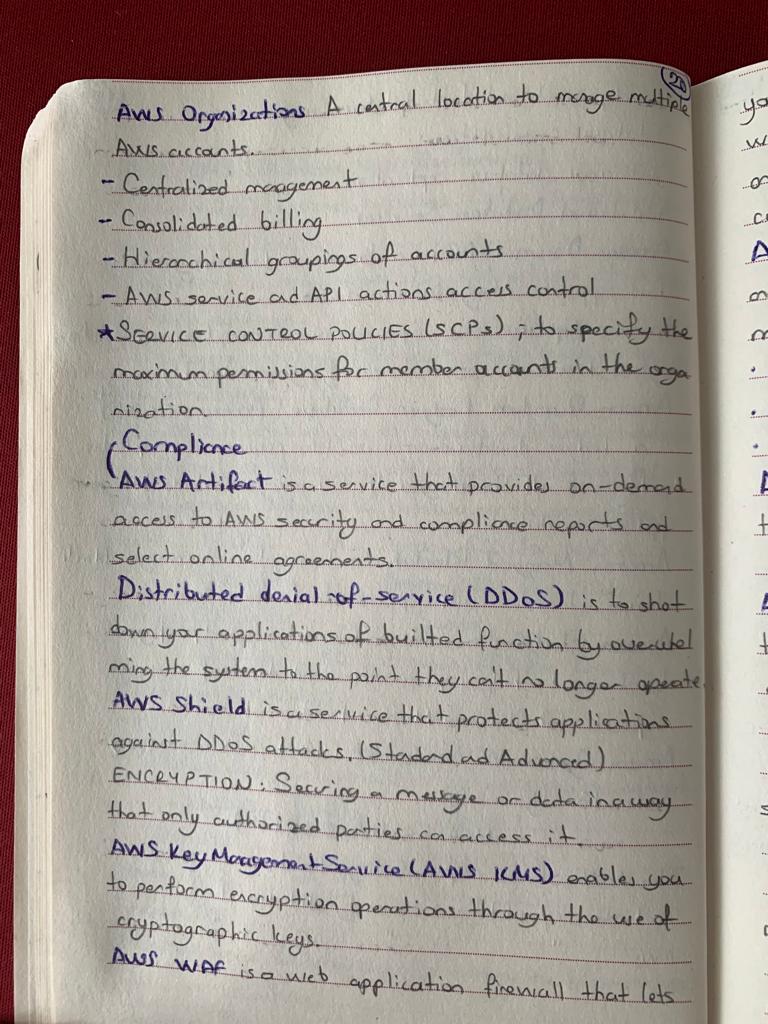 20
AWS Organizations A central location to manage multiple
AWS accounts.
- Centralized management
- Consolidated billing
- Hierarchical groupings of accounts
- AWS service ad API actions access control
★ SERVICE CONTROL POLICIES (SCPs) ; to specify the
maximum permissions for member accounts in the orga
nization
Compliance
AWS Artifact is a service that provides on-demand
access to AWS security and compliance reports and
select online agreements.
Distributed denial-of-service (DDoS) is to shot
down your applications of builted function by overwhel
ming the system to the point they can't no longer operate.
AWS Shield is a service that protects applications
against DDoS attacks. (Stadard ad Advanced)
ENCRYPTION: Securing a message or data in a way
that only authorized parties can access it.
AWS Key Management Service (AWS KMS) enables you
to perform encryption operations through the use of
cryptographic keys.
AWS WAF is a web application firewall that lets